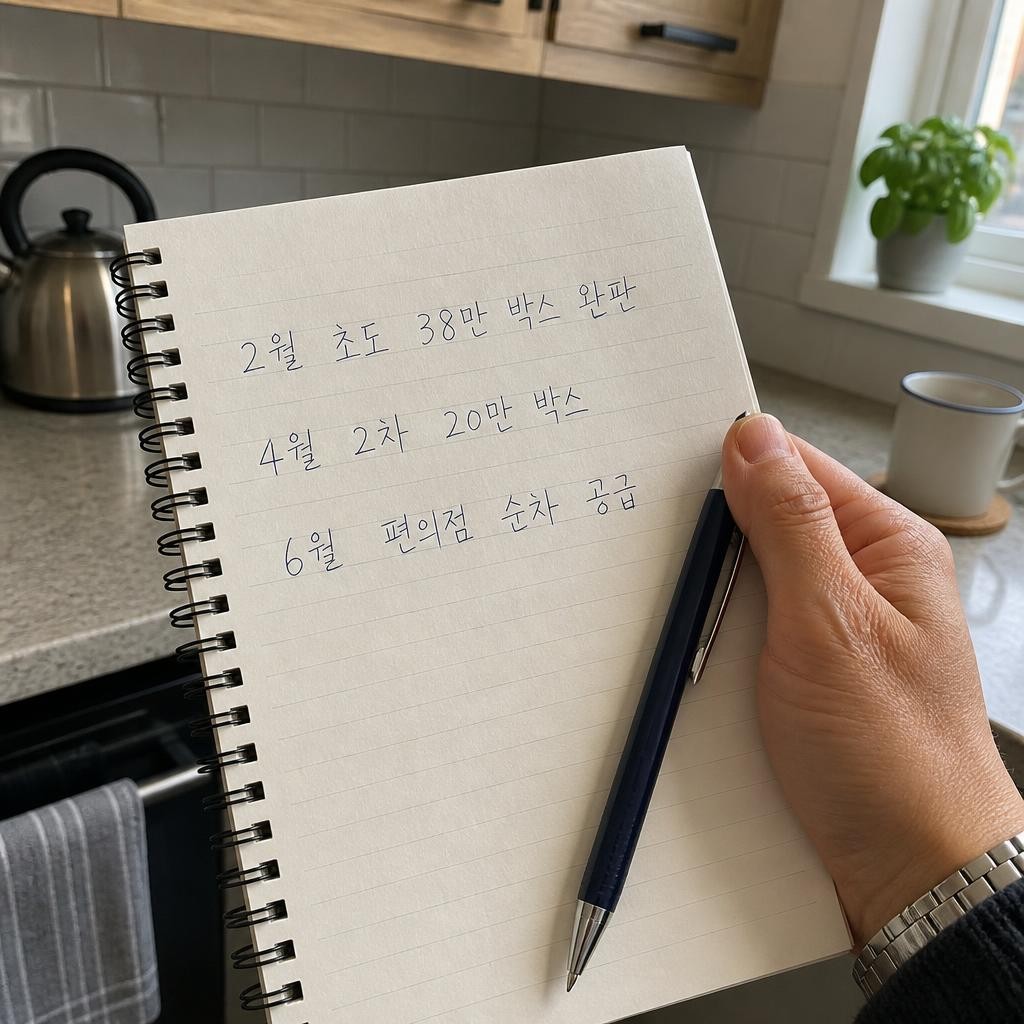 2월 초도 38만 박스 완판
4월 2차 20만 박스
6월 편의점 순차 공급